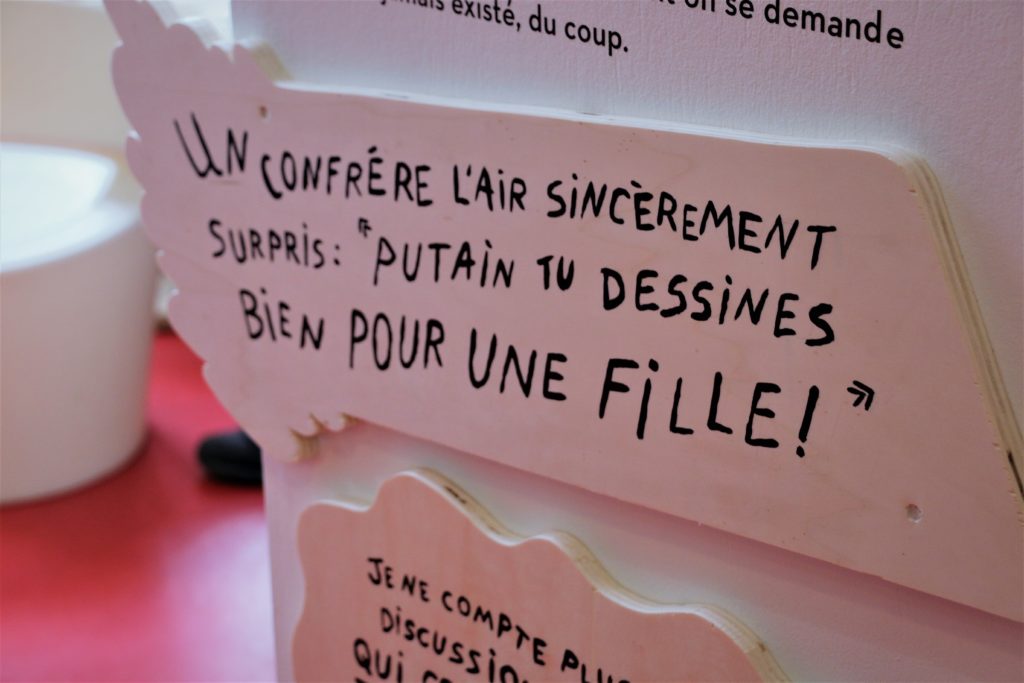 on se demande
jamais existé, du coup.
UN CONFRÉRE L'AIR SINCÈREMENT
SURPRIS: "PUTAIN TU DESSINES
BIEN POUR UNE FILLE! »
JE NE COMPTE
DISCUSSIO
QUI